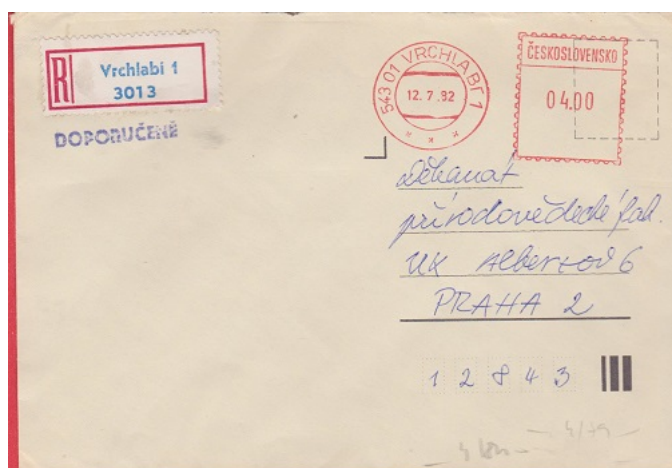 R Vrchlabi 1
3013
DOPORUČENĚ
543 01 VRCHLABÍ 1
12. 7. 82
* * *
ČESKOSLOVENSKO
04.00
Děkanát
přírodovědecké fak.
UK Albertov 6
PRAHA 2
12843